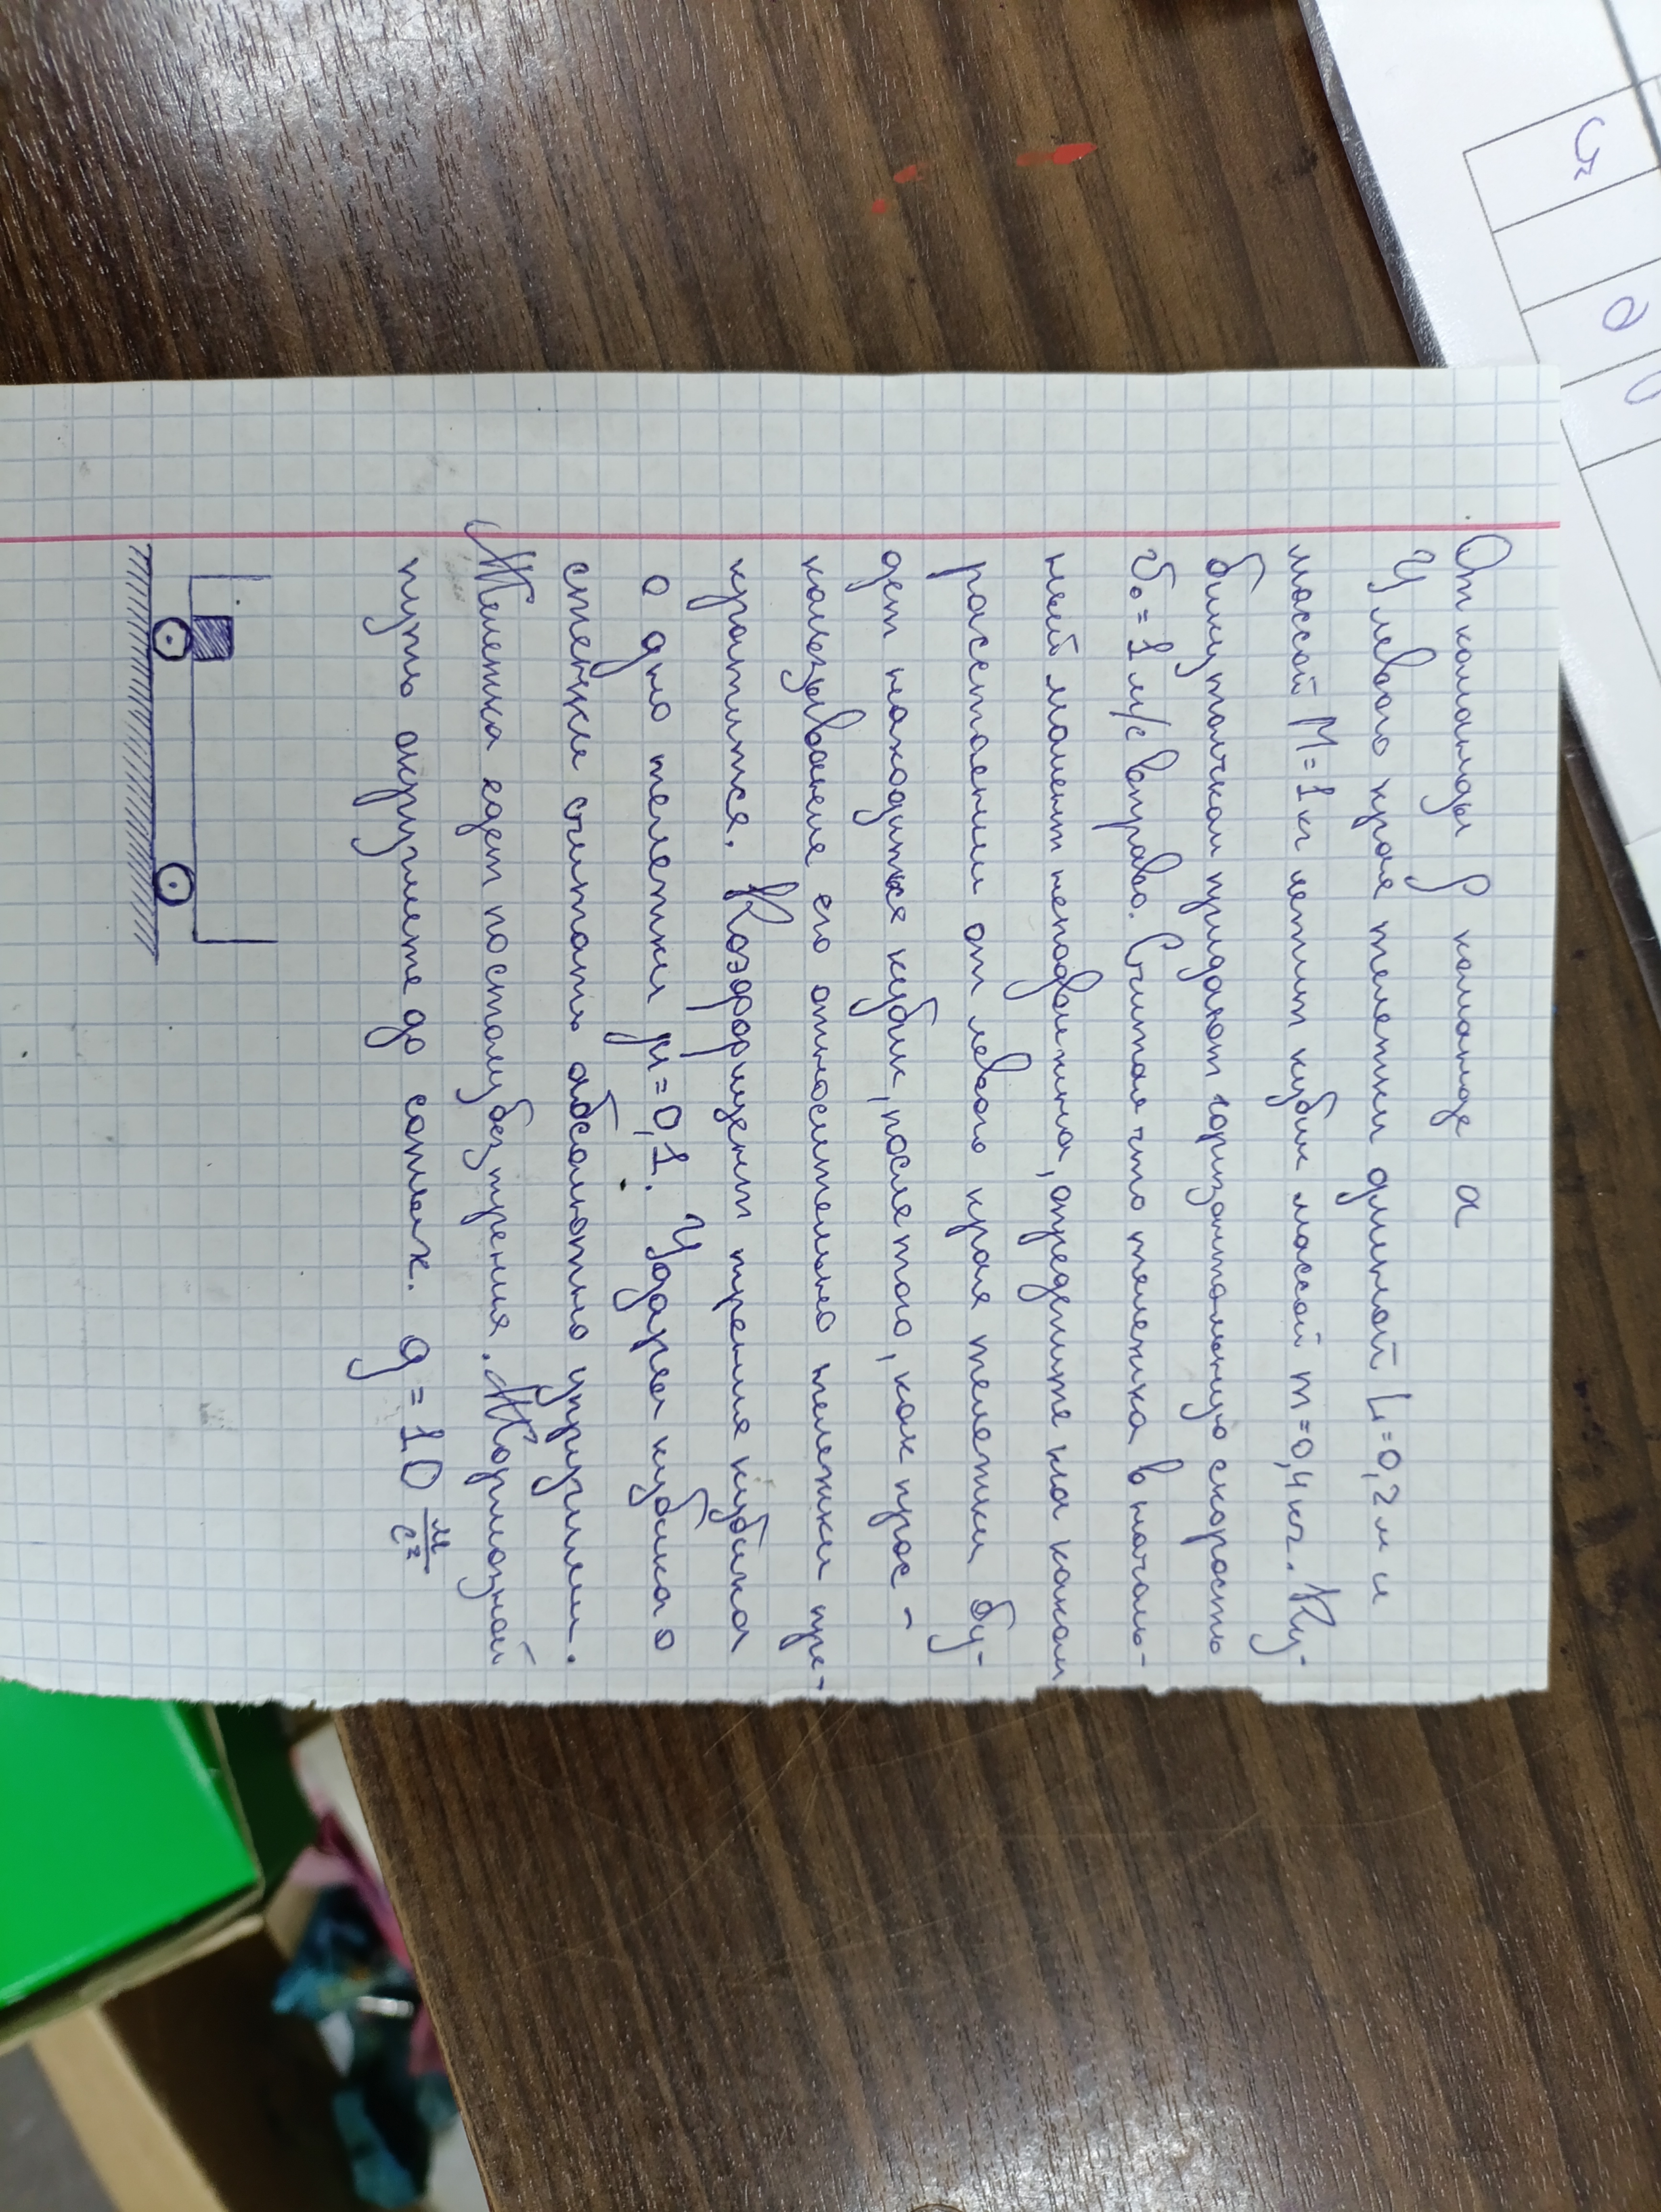 От команды β команде α
У левого края тележки длиной L=0,2м и
массой M=1кг летит кубик массой m=0,4кг. Ку-
бику толчком придают горизонтальную скорость
v₀=1м/с вправо. Считая что тележка в началь-
ный момент неподвижна, определите на каком
расстоянии от левого края тележки бу-
дет находиться кубик, после того, как прос-
кальзывание его относительно тележки пре-
кратится. Коэффициент трения кубика
о дно тележки μ=0,1. Удары кубика о
стенки считать абсолютно упругими.
Тележка едет по столу без трения. Тормозной
путь округлите до сотых. g = 10 м/с²